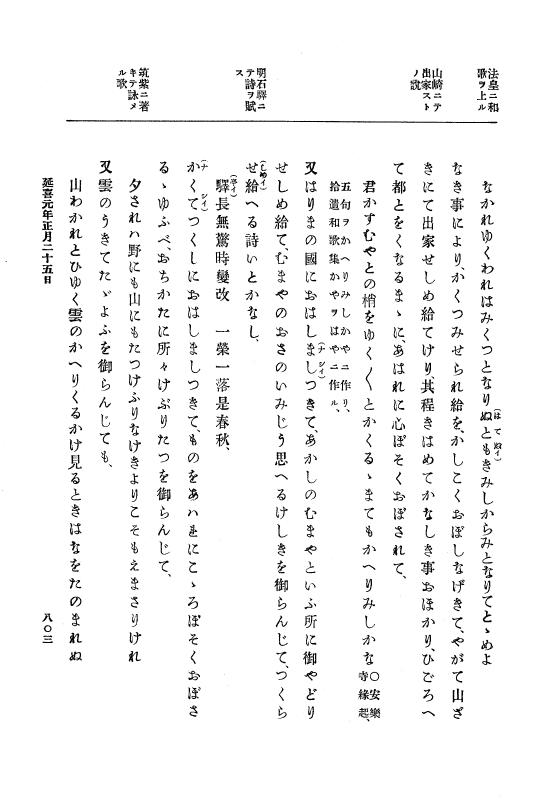 法皇ニ和
歌ヲ上ル
山崎ニテ
出家スト
ノ說
明石驛ニ
テ詩ヲ賦
ス
筑紫ニ著
キテ詠メ
ル歌
なかれゆくわれはみくつとなりぬともきみしからみとなりてとゝめよ
(はてぬイ)
なき事により、かくつみせられ給を、かしこくおぼしなげきて、やがて山ざ
きにて出家せしめ給てけり、其程きはめてかなしき事おほかり、ひごろへ
て都とをくなるまゝに、あはれに心ぼそくおぼされて、
君かすむやとの梢をゆく〱とかくるゝまてもかへりみしかな
○安樂
寺緣起、
五句ヲかへりみしかやニ作リ、
拾遺和歌集かやヲはやニ作ル、
又はりまの國におはしましつきて、あかしのむまやといふ所に御やどり
(ナシイ)
せしめ給て、むまやのおさのいみじう思へるけしきを御らんじて、つくら
せ給へる詩いとかなし、
(しめイ)
驛長無驚時變改 一榮一落是春秋、
(亭イ)
かくてつくしにおはしましつきて、ものをあハれにこゝろぼそくおぼさ
(ナシイ)
るゝゆふべ、おちかたに所々けぶりたつを御らんじて、
夕されハ野にも山にもたつけふりなけきよりこそもえまさりけれ
又雲のうきてたゞよふを御らんじても、
山わかれとひゆく雲のかへりくるかけ見るときはなをたのまれぬ
延喜元年正月二十五日
八〇三